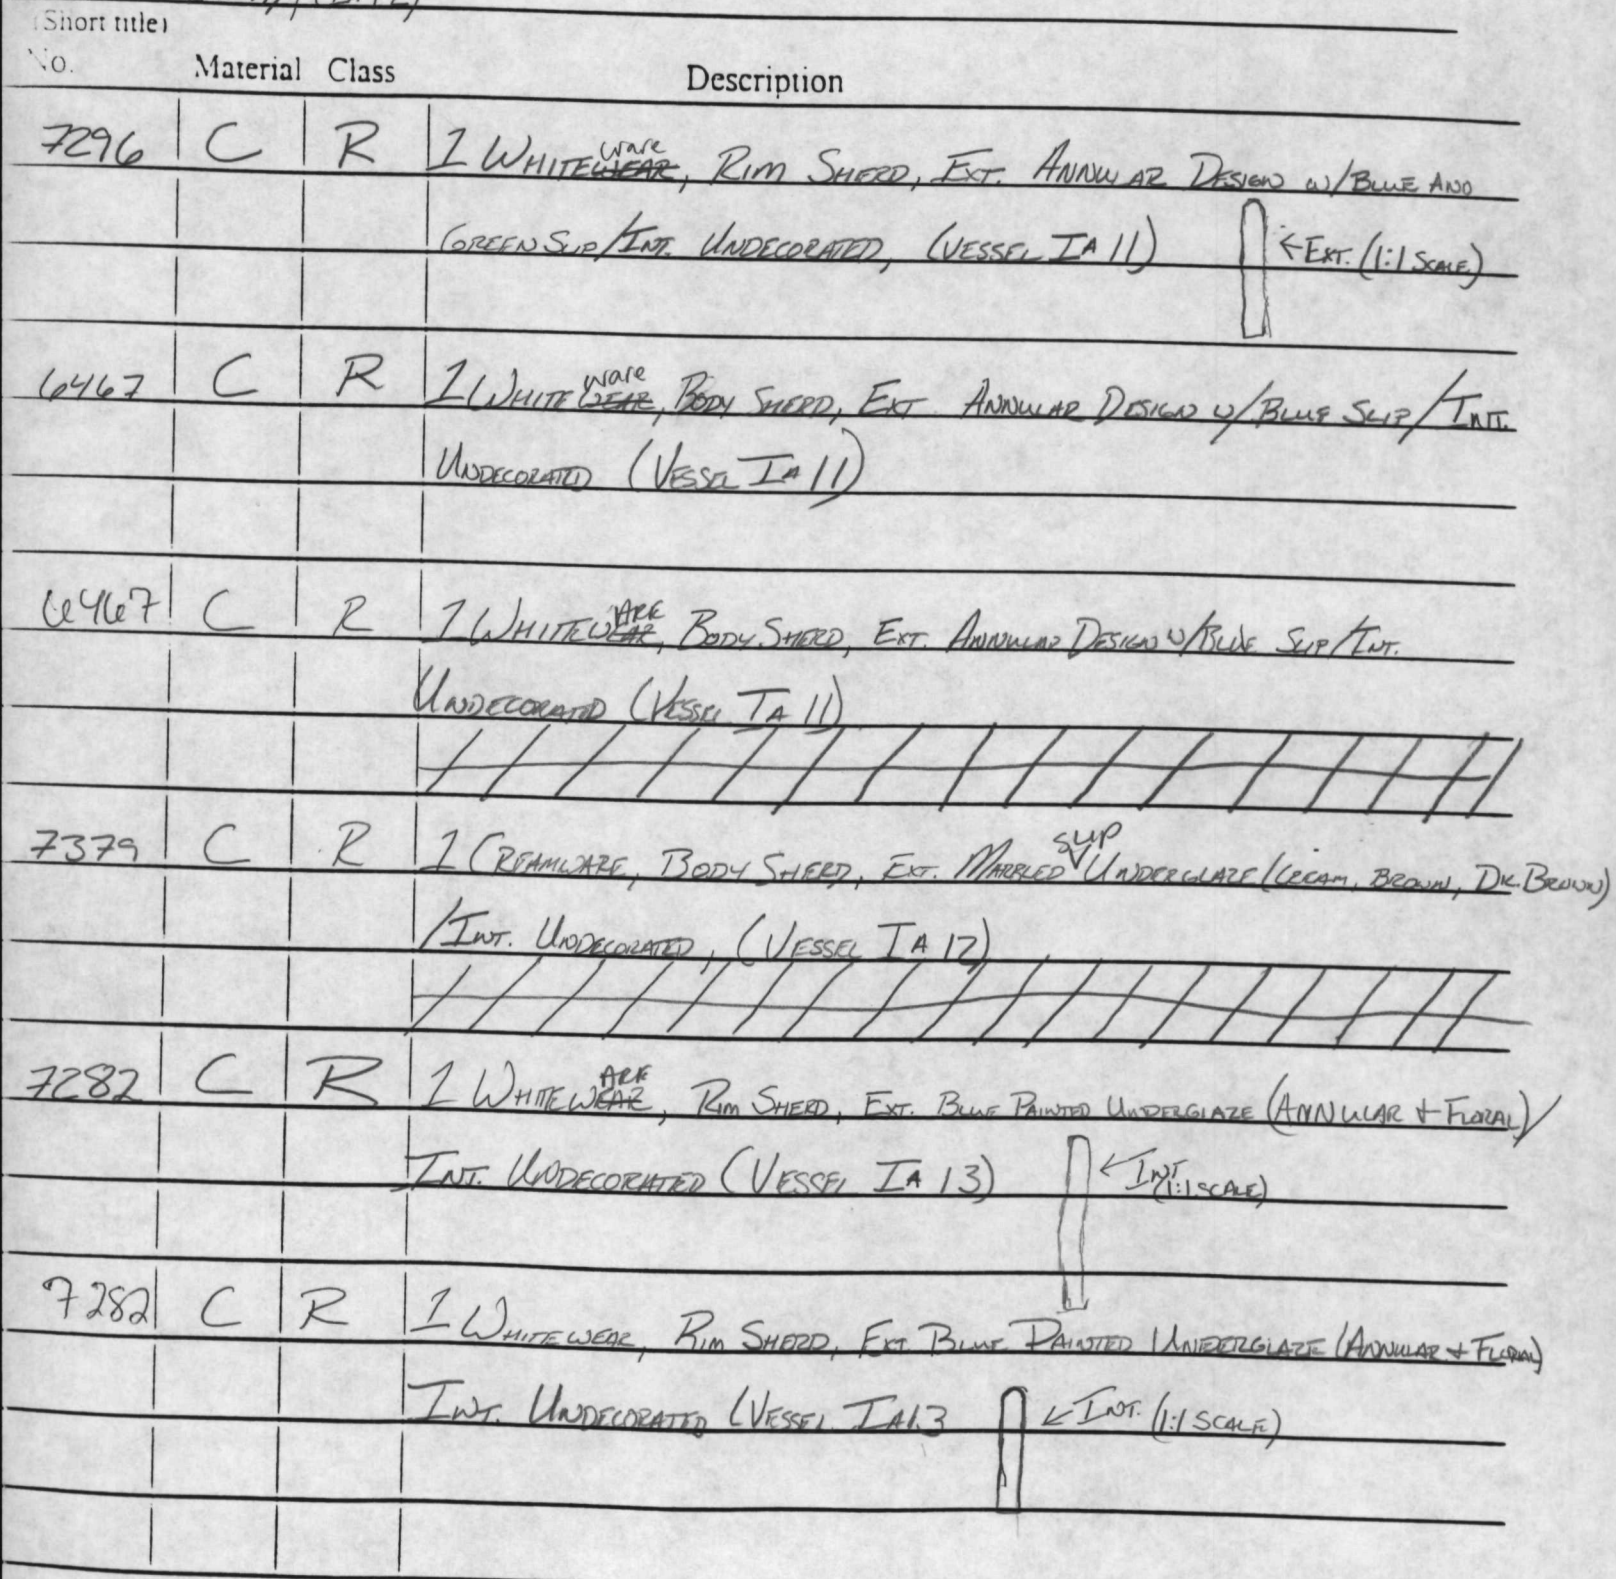 (Short title)
No. Material Class Description
7296 C R 1 WHITEWEAR ware, RIM SHERD, EXT. ANNULAR DESIGN W/BLUE AND
GREEN SLIP/INT. UNDECORATED, (VESSEL IA 11) ←EXT. (1:1 SCALE)
6467 C R 1 WHITEWEAR ware, BODY SHERD, EXT ANNULAR DESIGN W/BLUE SLIP/INT.
UNDECORATED (VESSEL IA 11)
6467 C R 1 WHITEWEAR ARE, BODY SHERD, EXT. ANNULAR DESIGN W/BLUE SLIP/INT.
UNDECORATED (VESSEL IA 11)
7379 C R 1 CREAMWARE, BODY SHERD, EXT. MARBLED SLIP UNDERGLAZE (CREAM, BROWN, DK. BROWN)
/INT. UNDECORATED, (VESSEL IA 12)
7282 C R 1 WHITEWEAR ARE, RIM SHERD, EXT. BLUE PAINTED UNDERGLAZE (ANNULAR + FLORAL)/
INT. UNDECORATED (VESSEL IA 13) ←INT. (1:1 SCALE)
7282 C R 1 WHITEWEAR, RIM SHERD, EXT. BLUE PAINTED UNDERGLAZE (ANNULAR + FLORAL)
INT. UNDECORATED (VESSEL IA13 ←INT. (1:1 SCALE)